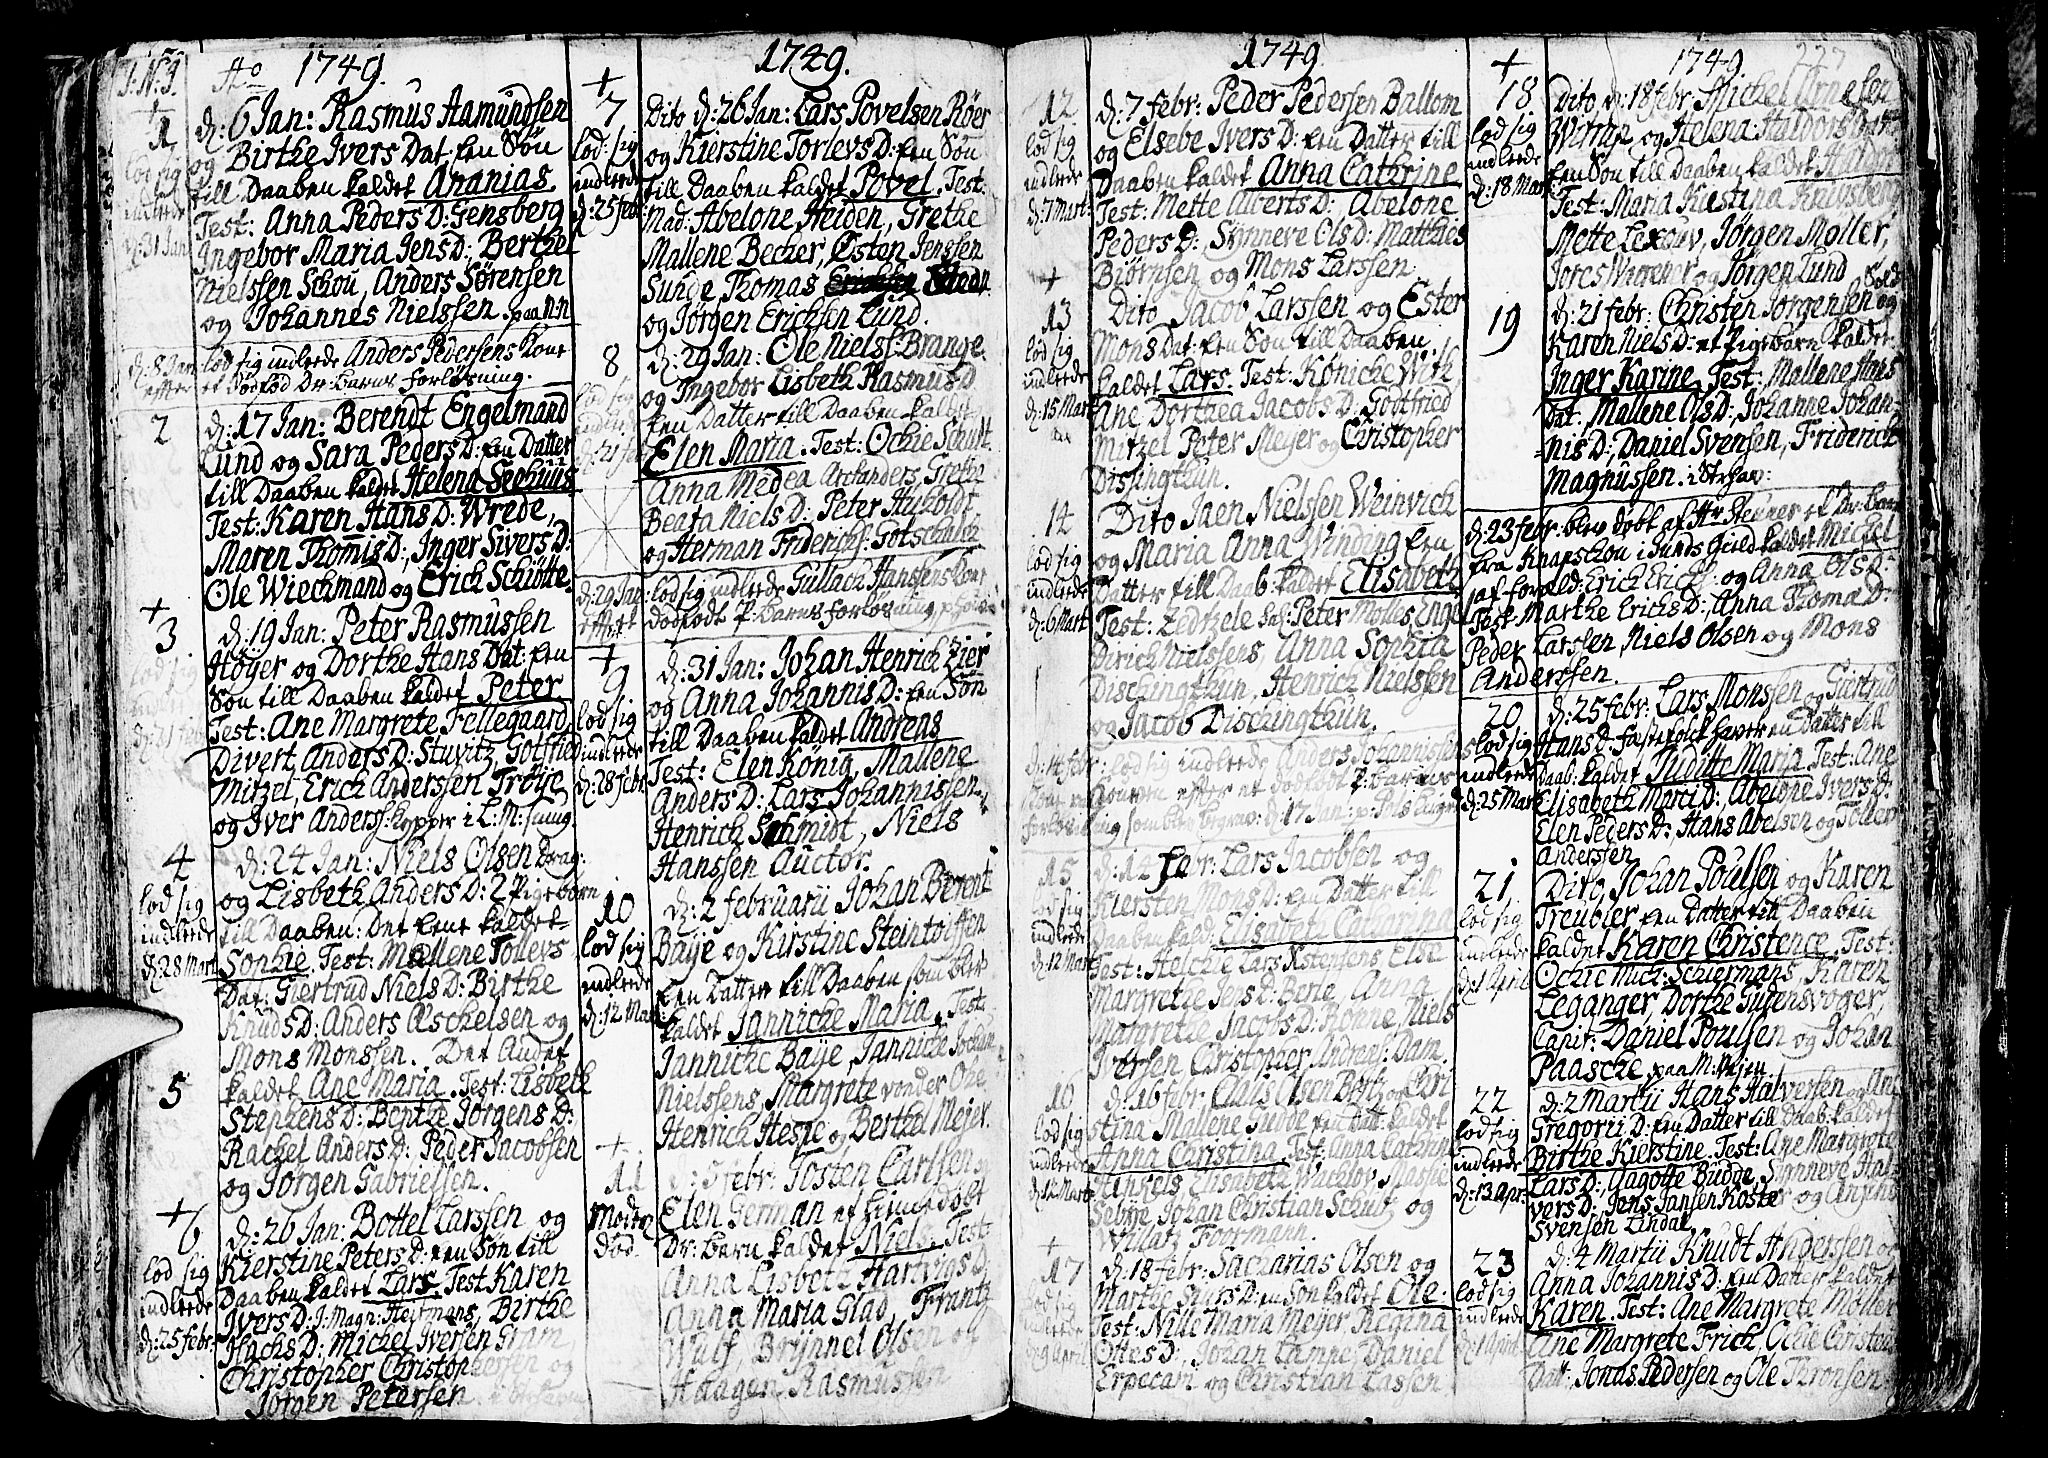 1749.
J. N. J. Ao
1
d: 6 Jan: Rasmus Aamundsen
og Birthe Ivers Dat: een Søn
till Daaben kaldet Ananias.
Test: Anna Peders D: Gensberg
Ingebor Maria Jens D: Berthel
Nielssen Schou, Anders Sørensen
og Johannes Nielssen. paa N:n
lod sig
indlede
d: 31 Jan
d: 8 Jan lod sig indlede Anders Pedersens Kone
efter et Dødfød Dr: barns forløsning.
2
d: 17 Jan: Berendt Engelmand
Lund og Sara Peders D: een Datter
till Daaben kaldet Helena Seehuus
Test: Karen Hans D: Wrede,
Maren Thomis D:, Inger Sivers D:
Ole Wieckmand og Erich Schiøtte.
3
d: 19 Jan: Peter Rasmussen
Høyer og Dorthe Hans Dat: een
Søn till Daaben kaldet Peter
Test: Ane Margrete Fellegaard
Divert Anders D: Stuvitz, Gotfried
Mitzel, Erich Anderssen Trøye
og Iver Anderss: Kopper i L: M: smug
lod sig
4
d: 24 Jan: Niels Olsen Drag:
og Lisbeth Anders D: 2 Pigebørn
till Daaben: Det eene kaldet
Sophie. Test: Mallene Tollevs
Dat: Giertrud Niels D: Birthe
Knuds D: Anders Æschelsen og
Mons Monssen. Det Andet
lod sig
indlede
d: 28 Mart
5
kaldet Ane Maria. Test: Lisbeth
Stephens D: Benthe Jørgens D:
Rachel Anders D: Peder Jacobsen
og Jørgen Gabrielsen.
+
6
d: 26 Jan: Bottel Larssen og
Kierstine Peters D: een Søn till
Daaben kaldet Lars. Test Karen
Ivers D: J: Magn: Heitmans, Birthe
Hachs D: Michel Iversen Gram
Christopher Christophersen og
Jørgen Petersen
lod sig
indlede
d: 25 febr:
1749.
+
7
Dito d: 26 Jan: Lars Povelsen Röer
og Kierstine Torlevs D: een Søn
till Daaben kaldet Povel. Test:
Mad: Abelone Heiden, Grethe
Mallene Becker, Østen Jenssen
Sunde, Thomas
og Jørgen Erichsen Lund.
lod sig
indlede
d: 25 febr
8
d: 29 Jan: Ole Nielss: Brange
og Ingebor Lisbeth Rasmus D
een Datter till Daaben kaldet
Elen Maria. Test: Ochie Schult
Anna Medea Archanders, Grethe
Beata Niels D: Peter Huboldt
og Herman Friderichs: Gotschalck
lod sig
d: 29 Jan: lod sig indlede Gullach Hanssens Kone
efter et dødfødt P: barns forløsning
+
9
d: 31 Jan: Johan Henrich Zier
og Anna Johannis D: een Søn
till Daaben kaldet Andreas
Test: Elen König, Mallene
Anders D: Lars Johannissen
Henrich Schmidt, Niels
Hanssen Auctor.
lod sig
indlede
d: 28 febr:
10
d: 2 februarii Johan Berent
Baye og Kirstine Steintoiffen
een Datter till Daaben som blev
kaldet Jannicke Maria. Test
Jannicke Baye, Jannicke Jochum
Nielssens, Margrete vonder Ohe
Henrich Hespe og Berthel Mejer.
lod sig
indlede
d: 12 Mar:
+
11
d: 5 febr: Tosten Carlsen og
Elen German et hiemedøbt
Dr: barn kaldet Niels. Test:
Anna Lisbeth Hartvigs D:
Anna Maria Glad, Frantz
Wulf Brynnel Olsen og
Haagen Rasmussen
Mod:
død.
1749.
12
d: 7 febr: Peder Pedersen Ballom
og Elsebe Ivers D: een Datter till
Daaben kaldet Anna Cathrine
Test: Mette Alberts D: Abelone
Peders D: Synneve Ols D: Matthies
Biørnsen og Mons Larssen.
lod sig
indlede
d: 7 Mart:
+
13
Dito Jacob Larssen og Ester
Mons Dat: een Søn till Daaben
kaldet Lars. Test: Kønicke Wirk
Ane Dorthea Jacobs D: Gotfried
Mitzel Peter Meyer og Christopher
Dissingthun.
lod sig
indlede
d: 15 Mart
14
Dito Jaen Nielssen Weinvich
og Maria Anna Winding een
Datter till Daab: kaldet Elisabeth
Test: Zedtzele Sal: Peter Mølles, Inge
Dirich Nielssens, Anna Sophia
Dischingthun. Henrich Nielssen
og Jacob Dischingthun.
lod sig
indlede
d: 6 Mart
d: 14 febr: lod sig indlede Anders Johannissens
Kone efter et dødfødt P: barns
forløsning som blev begrav: d: 17 Jan:
15
d: 14 febr: Lars Jacobsen og
Kiersten Mons D: een Datter till
Daaben kald: Elisabeth Catharina
Test: Helchie Lars Xstensens Else
Margrethe Jens D: Berie, Anna
Margrete Jacobs D: Rønne, Niels
Iversen Christopher Andreas: Dam.
lod sig
indlede
d: 12 Mart
d: 16 febr: Claus Olsen Bortz og Chri
stina Mallene Hedde een Dat: kaldet
Anna Christina. Test: Anna Cathrina
Finkels Elisabeth Witelov Maspie
Sebye, Johan Christian Schub og
Willatz Foormann.
lod sig
indlede
d: 12 Mart
+
17
d: 18 febr: Sacharias Olsen og
Marthe Siurs D: en Søn kaldet Ole.
Test: Nille Maria Meyer Regina
Ottes D:, Johan Lampe, Daniel
Erpecan og Christian Lassen
lod sig
indlede
d: 9 April
1749. 227
+
18
Dito d: 18 febr: Michel Arnesen
og Helena Haldors Datt:
een Søn till Daaben kaldet Haldor
Test: Maria Kiestina Knussberg
Mette Lexouv, Jørgen Møller,
og Jørgen Lund Sold
lod sig
indlede
d: 18 Mart
19
d: 21 febr: Christen Jørgensen og
Karen Niels D: et Pigebarn kaldet
Inger Karine. Test: Mallene Hans
Dat: Mallene Ols D:, Johanne Johan-
nis D:, Daniel Svensen, Friderich
Magnussen. i Strhav:
d: 23 febr: blev døbt af Hr Steener et Dr: barn
fra Knapschou i Sunds Gield kaldet Michel
af foræld: Erich Erichs: og Anna Ols D:
Test: Marthe Erichs D:, Anna Thomæ D:
Peder Larssen Niels Olsen og Mons
Anderssen.
20
d: 25 febr: Lars Monssen og Giertrud
Hans D: fæstefolk haver en Datter till
Daab: kaldet Juditte Maria. Test: Ane
Elisabeth Marci D: Abelone Ivers D:
Elen Peders D: Hans Abelsen og Toller
Anderssen
lod sig
indlede
d: 25 Mart
21
Dito, Johan Poulsen og Karen
Treubler een Datter till Daaben
kaldet Karen Christence. Test:
Ochie Mich: Schiermans, Karen
Leganger, Dorthe Giøensvoger,
Capit: Daniel Poulsen og Johan
Paasche paa M:Vejen.
lod sig
indlede
d: 1 April
22
d: 2 Martii Hans Halversen og Ane
Gregorii D: een Datter till Daab: kaldet
Birthe Kierstine. Test: Ane Margrete
Lars D:, Gagotte Budde, Synneve Hal
vers D: Jens Jansen Koste og
Svensen Lindal.
lod sig
indlede
d: 13 Apr:
23
d: 4 Martii Knudt Anderssen og
Anna Johannis D: een Datter kaldet
Karen. Test: Ane Margrete Møller
Ane Margrete Frich, Ochie Christens
Datt:, Jonas Pedersen og Ole Thronsen
lod sig
indlede
d: 1 April